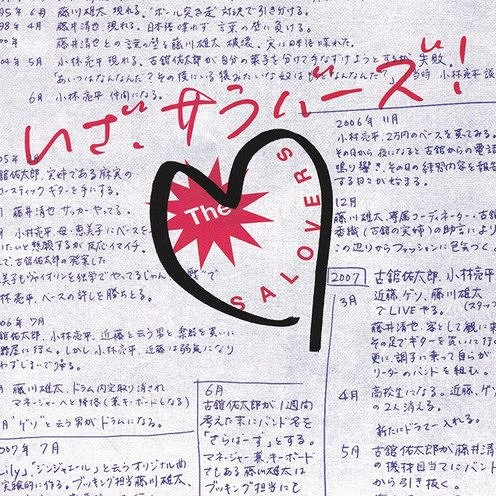 95年 6月 藤川雄大 現れる。"ボール突き走"対決で引き分ける。
98年 4月 藤井清也 現れる。日本語喋れず 言葉の壁に負ける。
藤井清也との言葉の壁を藤川雄大 破壊、実は日本語喋れた。
04年 5月 小林亮平 現れる。古舘佑太郎が自分の菓子を分けて手なずけようとするが 失敗。
「あいつはなんなんだ?その後にいる後みたいな奴はもっとなんなんだ?」当時 小林亮平 談
6月 小林亮平 仲間になる。
いざ、サラバーズ!
The
SALOVERS
05年
古舘佑太郎、実姉である麻実の
アコースティックギターを手にする。
藤井清也 サッカーやってる。
小林亮平、母・恵美子にベースを
りたいと懇願するが反応イマイチ。
で、古舘佑太郎の発案した
美子もヴァイオリンを仕事でやってるじゃん
林亮平、ベースの許しを勝ちとる。
06年 7月
古舘佑太郎、小林亮平、近藤と云う男と楽器を買いに
に行く。しかし小林亮平、近藤は弱気になり
わずじまいで帰る。
藤川雄大、ドラム内定取り消され
マネージャーへと降格(兼キーボードとなる)
"ゲソ"と云う男がドラムになる。
2007年 7月
Lily」「ジンジャエール」と云うオリジナル曲
実験的に作る。ブッキング担当藤川雄大、
6月
古舘佑太郎が1週間
考えた末にバンド名を
「さらばーず」とする。
マネージャー兼、キーボード
でもある藤川雄大は
ブッキング担当にも
2006年 11月
小林亮平、2万円のベースを買ってみる。
その日から夜になると古舘からの電話
鳴り響き、その日の練習内容を報告
する日々が始まる。
12月
藤川雄大、専属コーディネーター・古舘
香織(古舘の実姉)の助言により
この辺りからファッションに色気づく。
2007
古舘佑太郎、小林亮平
3月
近藤、ゲソ、藤川雄大
でLIVEやる。
藤井清也、客として観に来
その足でギターを買いに行
更に、調子に乗って自らが
リーダーのバンドを組む。
4月
高校生になる。近藤、ゲソ
の2人消える。
新たにドラマー入れる。
5月
古舘佑太郎が藤井清
の機材目当てにバンド
から引き抜く。